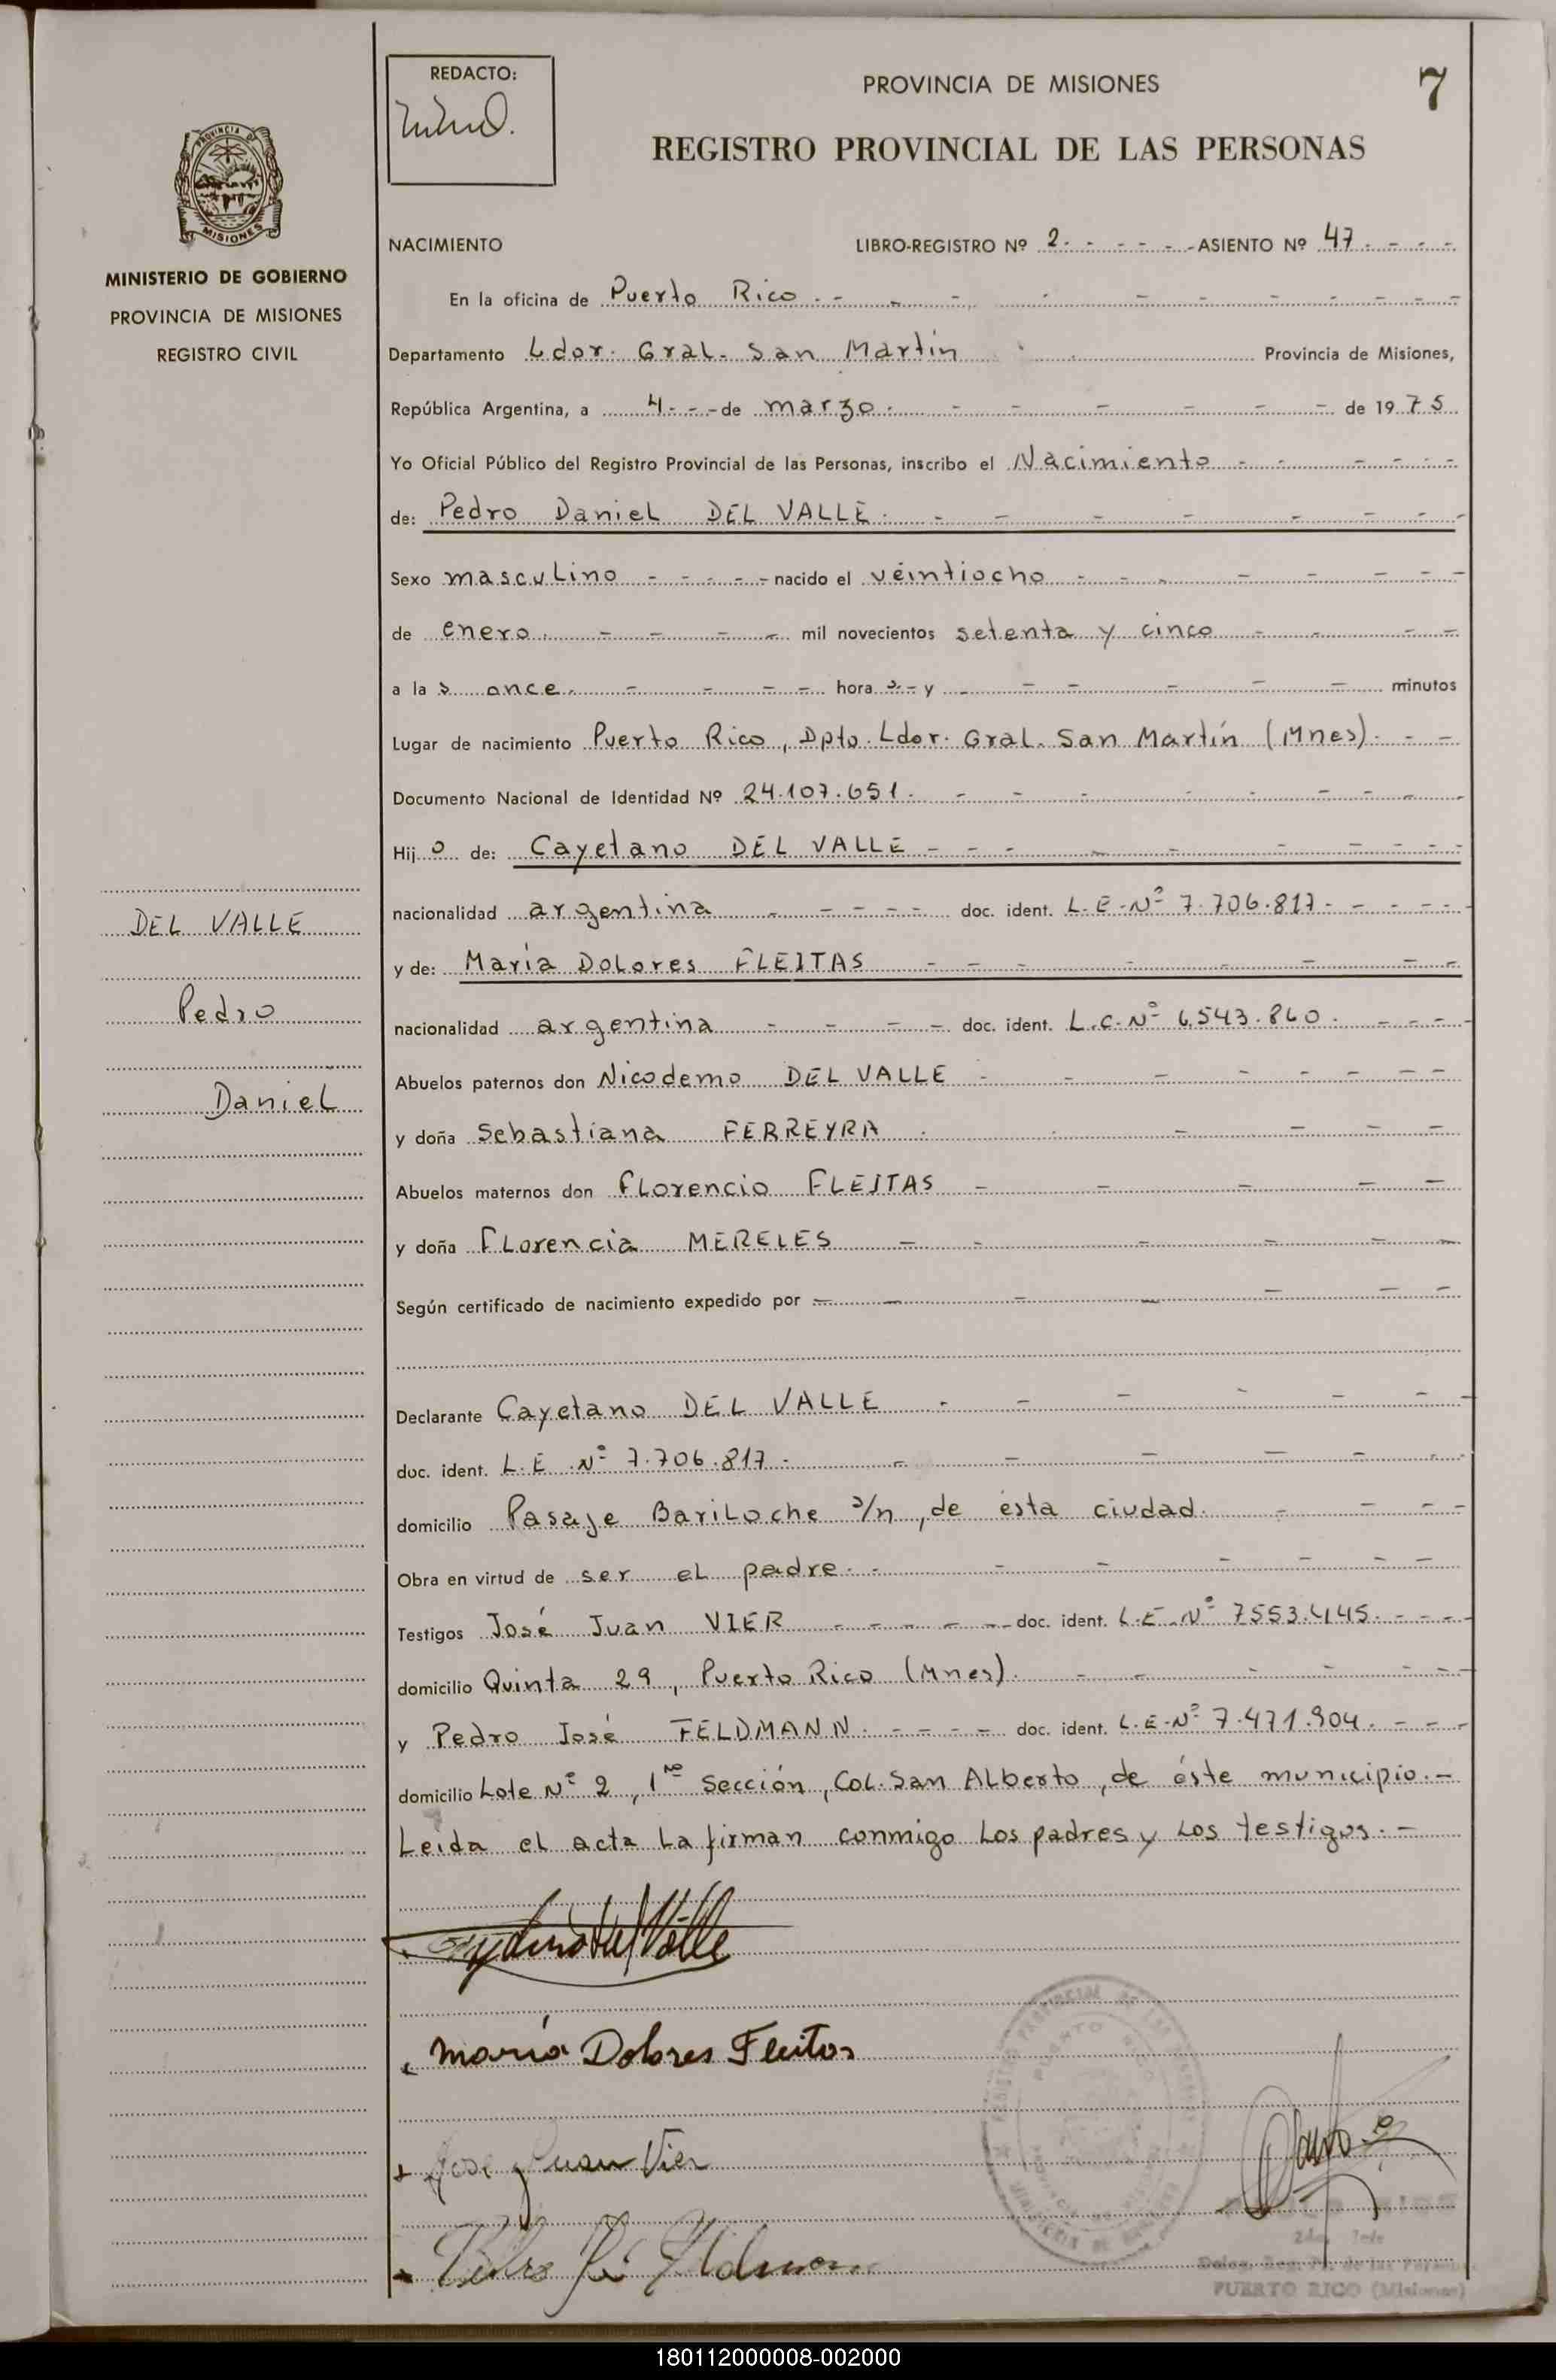 REDACTO:
PROVINCIA DE MISIONES
7
REGISTRO PROVINCIAL DE LAS PERSONAS
PROVINCIA DE
MISIONES
MINISTERIO DE GOBIERNO
PROVINCIA DE MISIONES
REGISTRO CIVIL
NACIMIENTO LIBRO-REGISTRO Nº 2 ASIENTO Nº 47
En la oficina de Puerto Rico
Departamento Ldor. Gral. San Martín Provincia de Misiones,
República Argentina, a 4 de marzo de 1975
Yo Oficial Público del Registro Provincial de las Personas, inscribo el Nacimiento
de: Pedro Daniel DEL VALLE
Sexo masculino nacido el veintiocho
de enero mil novecientos setenta y cinco
a las once hora s y minutos
Lugar de nacimiento Puerto Rico, Dpto. Ldor. Gral. San Martín (Mnes)
Documento Nacional de Identidad Nº 24.107.651
Hijo de: Cayetano DEL VALLE
nacionalidad argentina doc. ident. L.E.Nº 7.706.817
y de: María Dolores FLEITAS
nacionalidad argentina doc. ident. L.C.Nº 6.543.860
Abuelos paternos don Nicodemo DEL VALLE
y doña Sebastiana FERREYRA
Abuelos maternos don Florencio FLEITAS
y doña Florencia MERELES
Según certificado de nacimiento expedido por
Declarante Cayetano DEL VALLE
doc. ident. L.E Nº 7.706.817
domicilio Pasaje Bariloche s/n, de ésta ciudad.
Obra en virtud de ser el padre.
Testigos José Juan VIER doc. ident. L.E.Nº 7553.445
domicilio Quinta 29, Puerto Rico (Mnes).
y Pedro José FELDMANN. doc. ident. L.E.Nº 7.471.904
domicilio Lote Nº 2, 1ra Sección, Col. San Alberto, de éste municipio.-
Leída el acta la firman conmigo los padres y los testigos.-
DEL VALLE
Pedro
Daniel
Cayetano del Valle
María Dolores Fleitas
José Juan Vier
Pedro José Feldmann
PUERTO RICO
PUERTO RICO (Misiones)
180112000008-002000